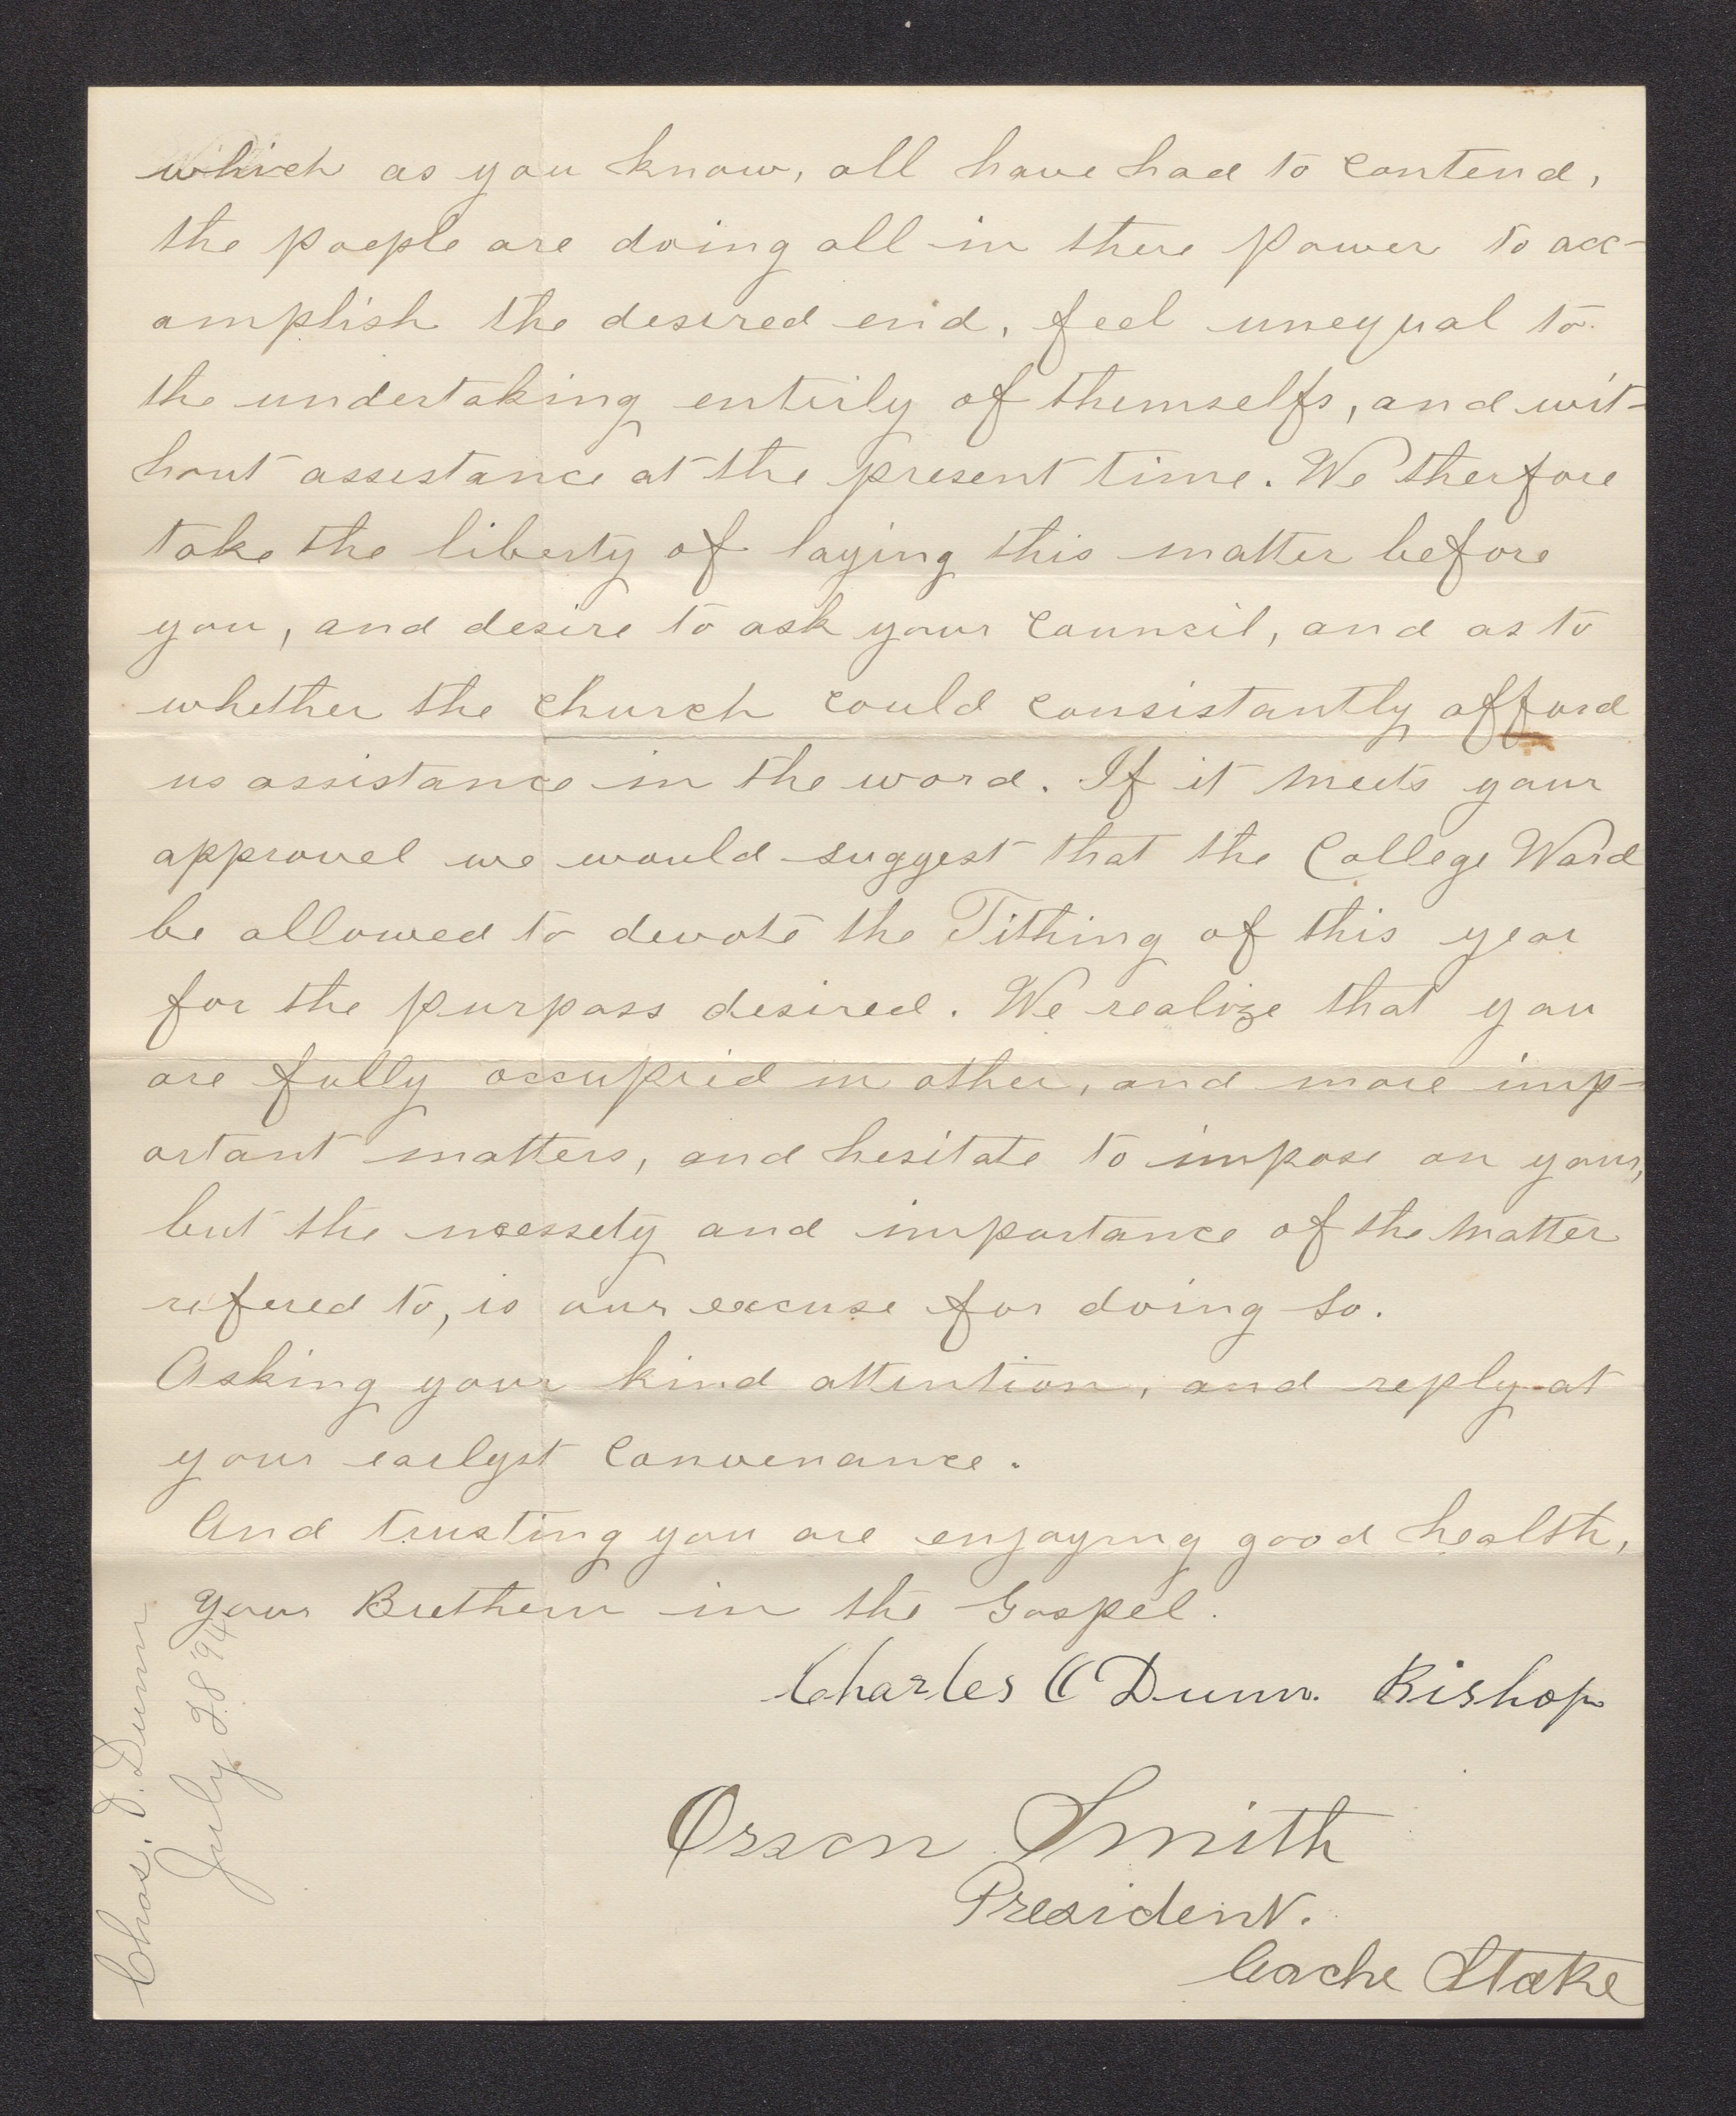 which as you know, all have had to contend,
the poeple are doing all in there power to acc-
omplish the desired end, feel unequal to
the undertaking entirly of themselfs, and wit-
hout assestance at the present time. We therfore
take the liberty of laying this matter before
you, and desire to ask your council, and as to
whether the church could consistantly afford
us assistance in the word. If it meets your
approvel we would suggest that the College Ward
be allowed to devote the Tithing of this year
for the purpass desired. We realize that you
are fully occupried in other, and more imp-
ortant matters, and hesitate to impose on yours,
but the necessety and importance of the matter
refered to, is our excuse for doing so.
Asking your kind attention, and reply at
your earlyst convenance.
And trusting you are enjoying good health,
your Brethern in the Gospel.
Charles O Dunn. Bishop
Orson Smith
President.
Cache Stake
Chas. O. Dunn
July 28 '94